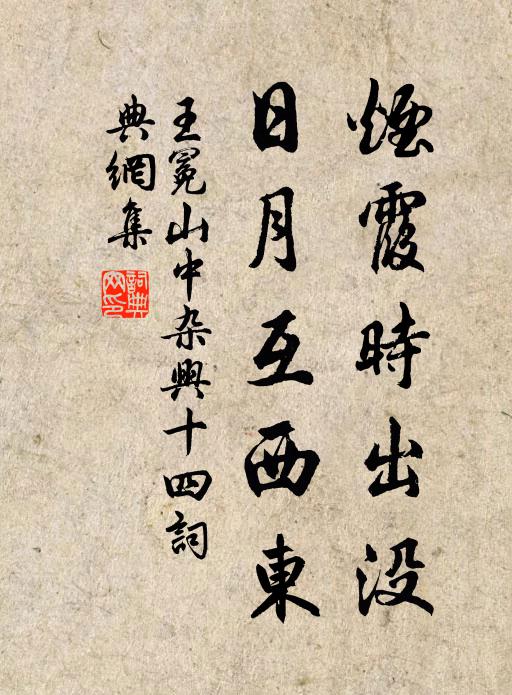 煙霞時出没
日月互西東
王冕山中杂興十四詞
典網集
詞典网印